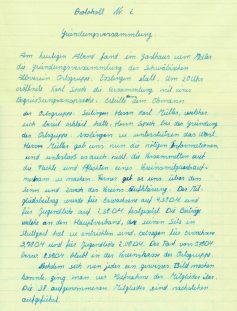 Protokoll Nr. 1
Gründungsversammlung
Am heutigen Abend fand im Gasthaus zum Adler
die Gründungsversammlung des Schwäbischen
Albverein Ortsgruppe statt. Um 20 Uhr
eröffnete Karl Späth die Versammlung mit einer
Begrüßungsansprache, stellte dem Obmann
der Ortsgruppe Herrn Karl Müller, welcher
sich bereit erklärt hatte, Herrn Späth bei der Gründung
der Ortsgruppe zu unterstützen das Wort.
Herrn Müller gab uns nun die nötigen Informationen
und unterließ es auch nicht die Versammelten auf
die Rechte und Pflichten eines Vereinsmitglieds auf-
merksam zu machen. Ferner gab er uns über den
Sinn und Zweck des Vereins Aufklärung. Der Mit-
gliedsbeitrag wurde für Erwachsene auf
und für Jugendliche auf festgesetzt. Die Beiträge
welche an den Hauptverband, der seinen Sitz in
Stuttgart hat zu entrichten sind, betragen für Erwachsene
und für Jugendliche Der Rest von
bzw. bleibt in der Vereinskasse der Ortsgruppe.
Nachdem sich nun jeder ein gewisses Bild machen
konnte, ging man zur Aufnahme der Mitglieder über.
Die 38 aufgenommenen Mitglieder sind nachstehen
aufgeführt.